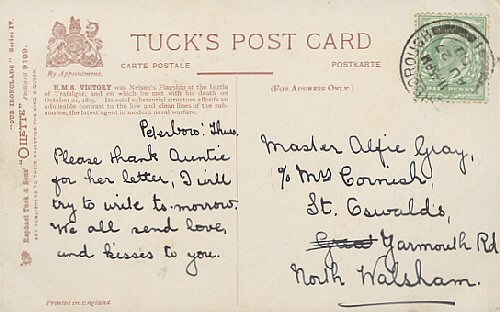 TUCK'S POST CARD
CARTE POSTALE
POSTKARTE
By Appointment.
H.M.S. VICTORY was Nelson's Flagship at the battle
of Trafalgar, and on which he met with his death on
October 21, 1805. Its solid substantial structure affords an
admirable contrast to the low and clean lines of the sub-
marine, the latest agent in modern naval warfare.
(FOR ADDRESS ONLY.)
"OUR IRONCLADS" Series IV.
Raphael Tuck & Sons' "OILETTE" Postcard 9109.
ART PUBLISHERS TO THEIR MAJESTIES THE KING & QUEEN.
Peterboro' Thurs.
Please thank Auntie
for her letter, I will
try to write to-morrow.
We all send love
and kisses to you.
Printed in England
Master Alfie Gray,
c/o Mrs Cornish,
St. Oswalds,
Great Yarmouth Rd
North Walsham.